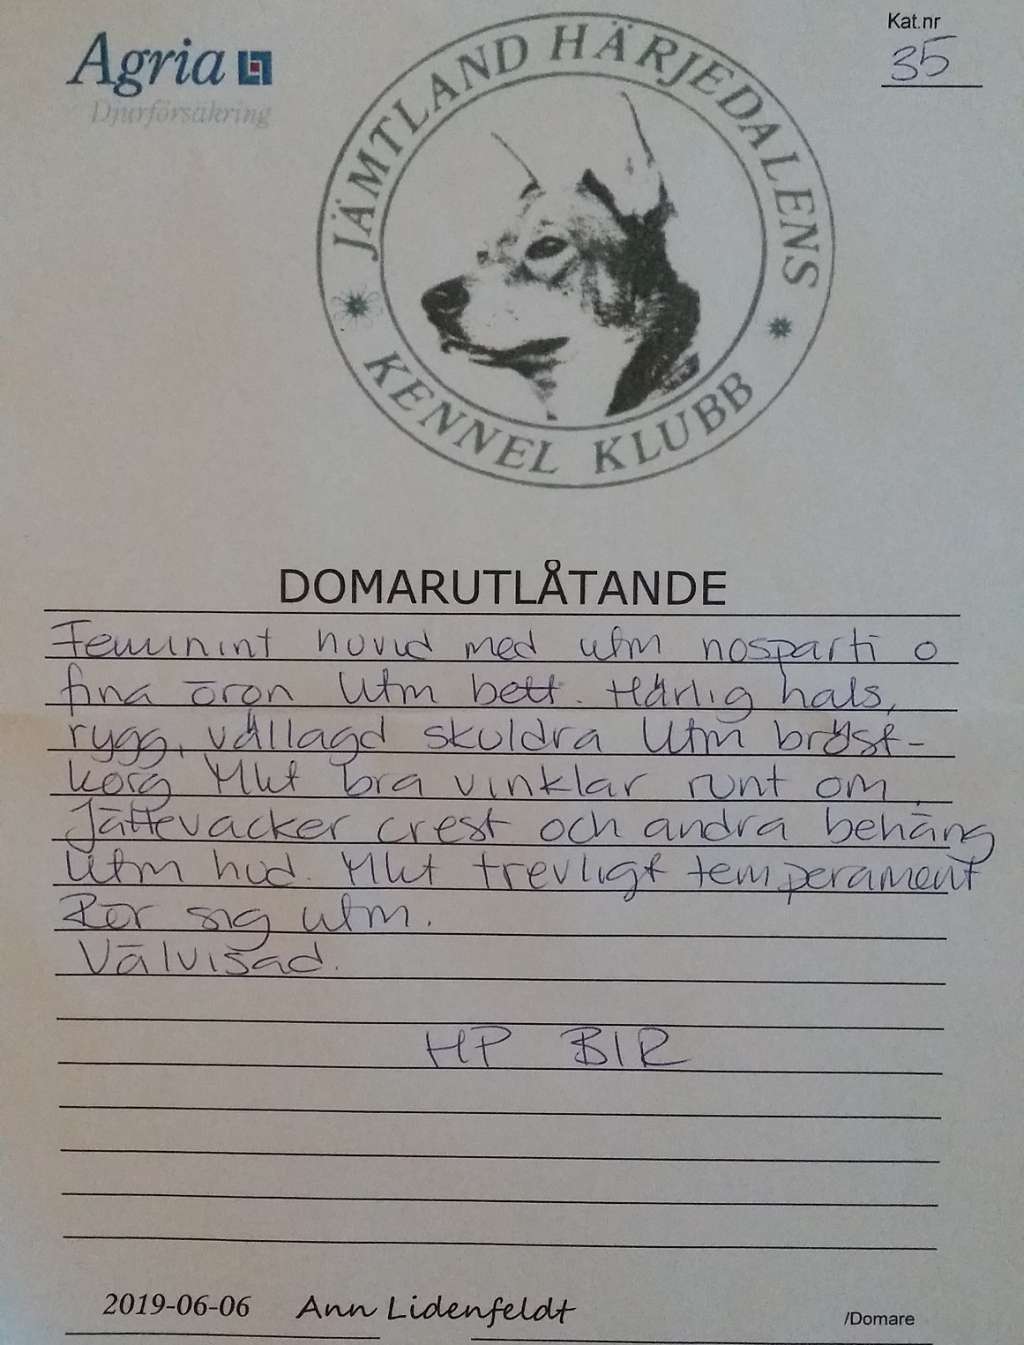 Agria
Djurförsäkring
Kat.nr
35
JÄMTLAND HÄRJEDALENS
KENNEL KLUBB
DOMARUTLÅTANDE
Feminint huvud med utm nosparti o
fina öron Utm bett. Härlig hals,
rygg, vällagd skuldra Utm bröst-
korg Mkt bra vinklar runt om.
Jättevacker crest och andra behäng
Utm hud. Mkt trevligt temperament
Rör sig utm.
Välvisad.
HP BIR
2019-06-06 Ann Lidenfeldt
/Domare